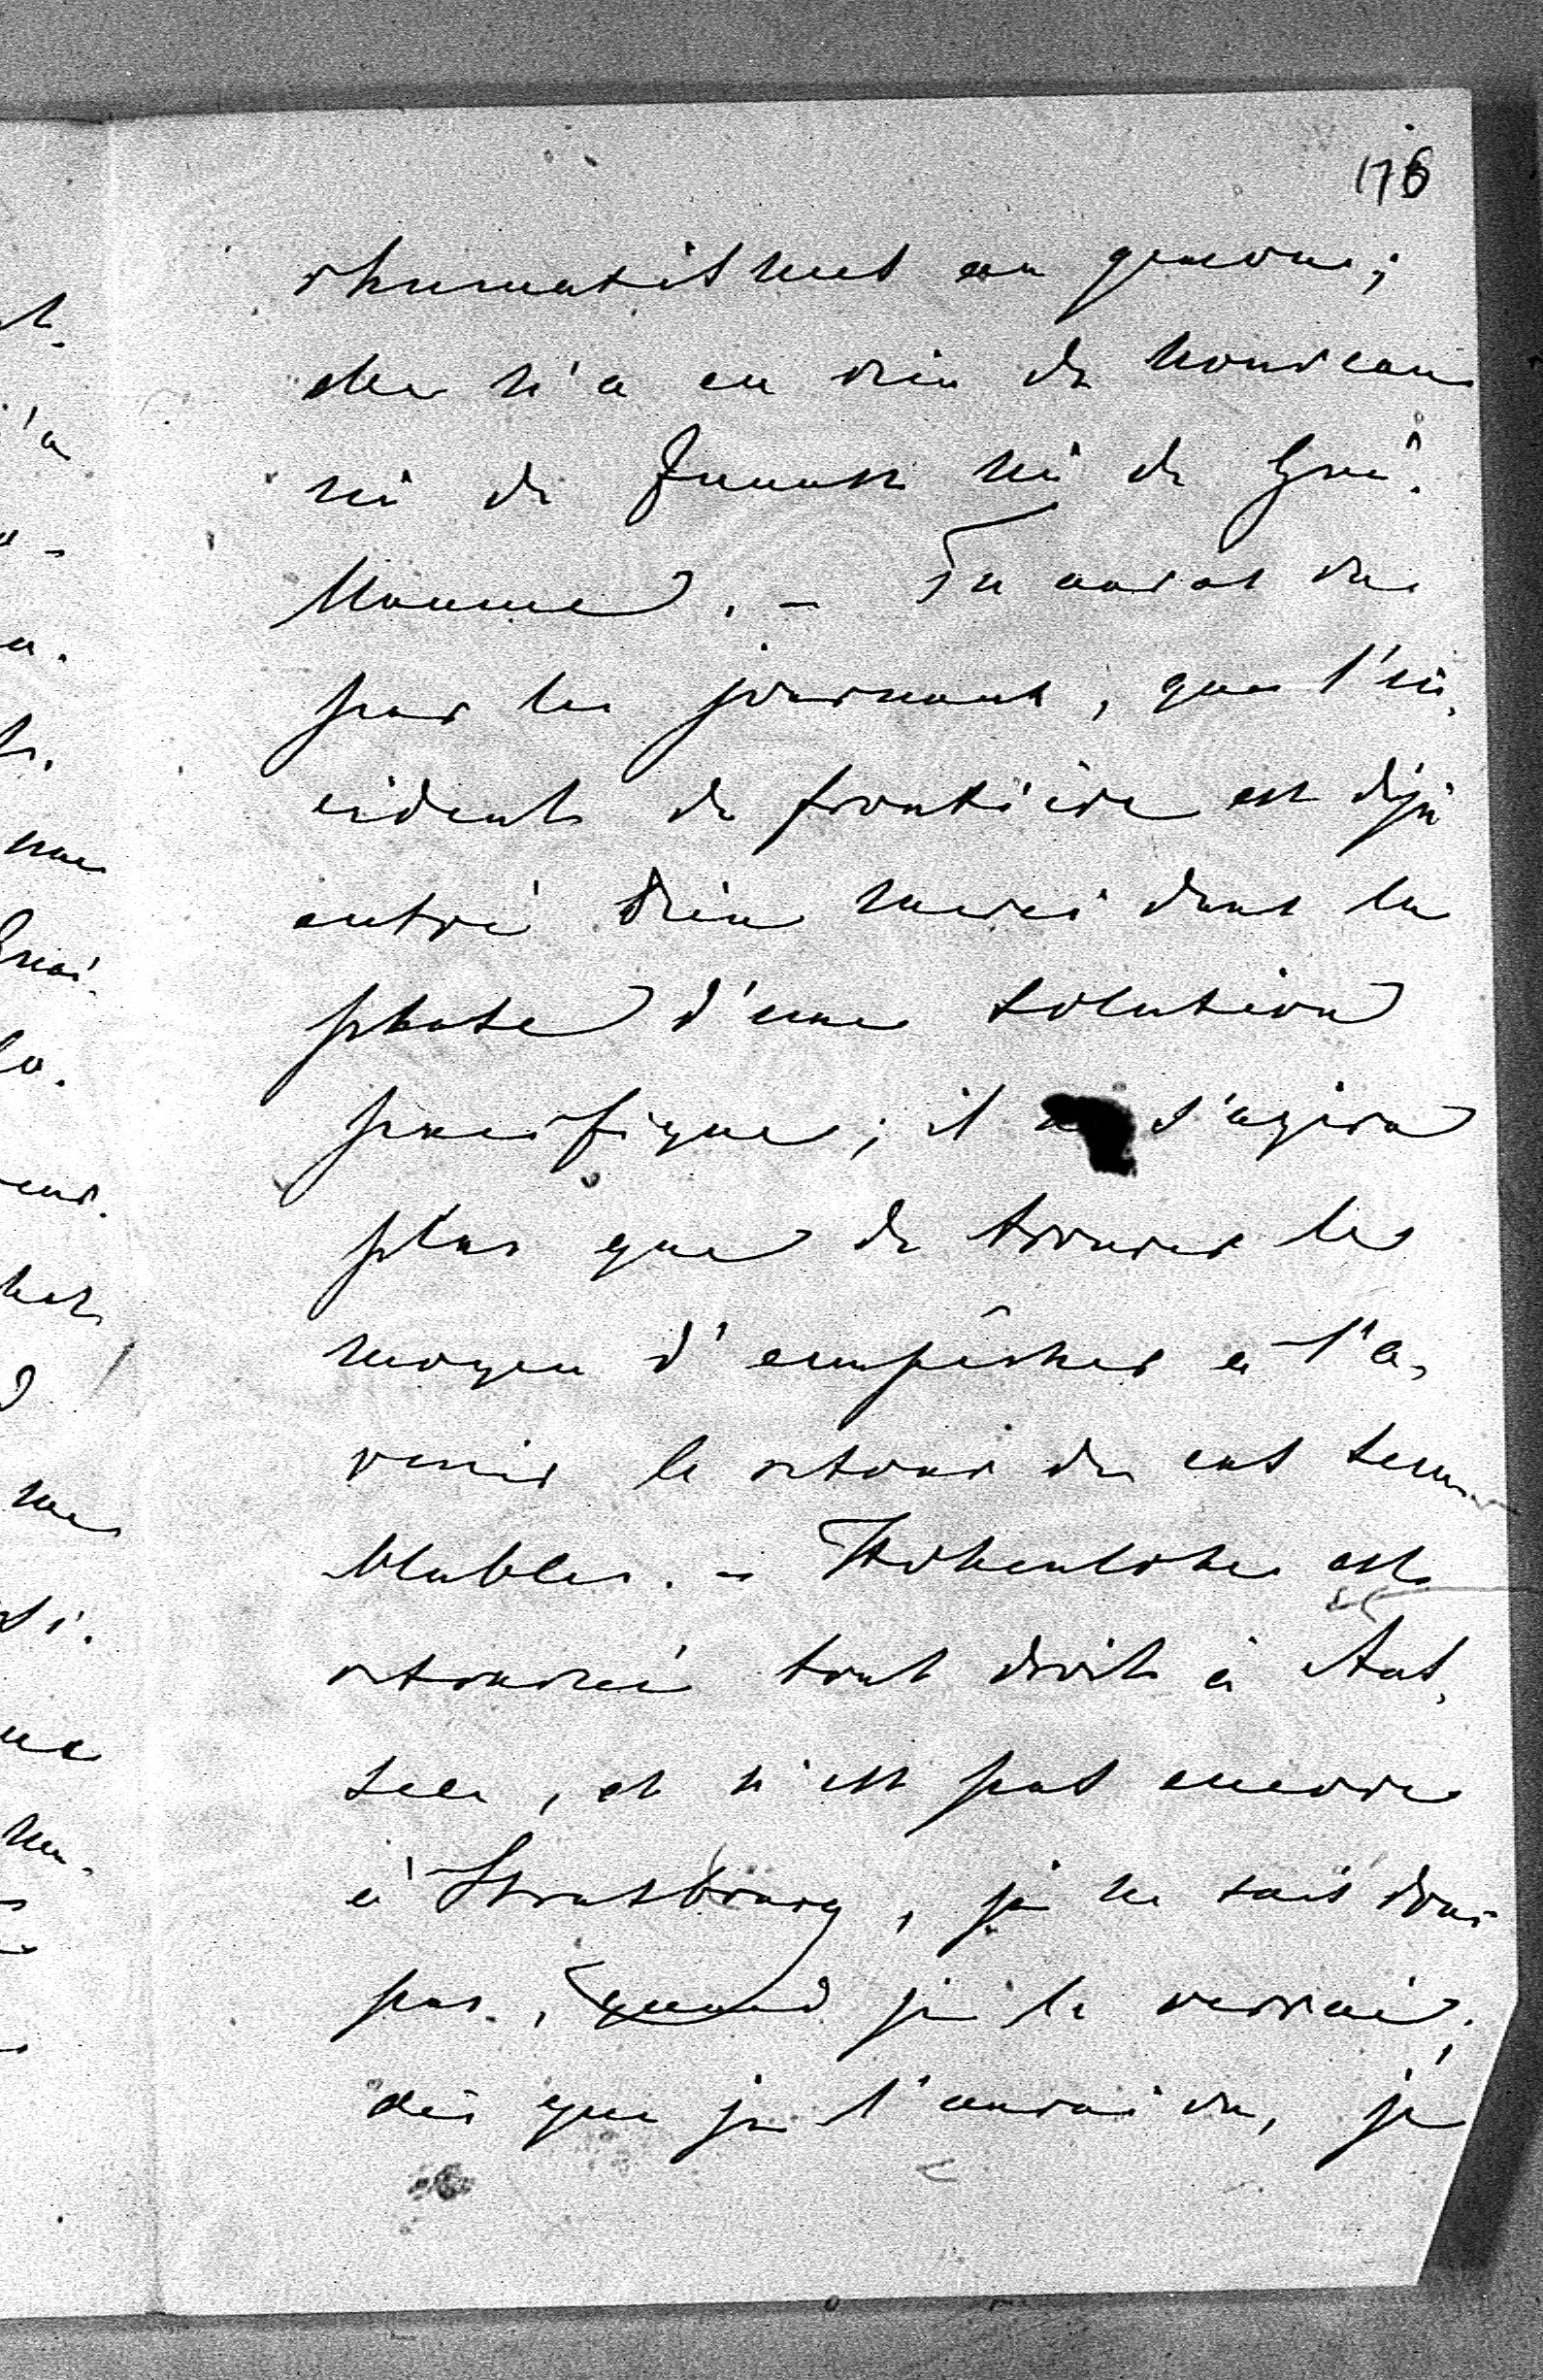 176
rhumatismes au genoux;
elle n'a eu rien de nouveau
ni de ni de Gui-
Mamma. - Tu auras vu
par les journaux, que l'in-
cident de frontière est déjà
entré Dieu merci dans la
phase d'une solution
pacifique; il s'agira
plus que de trouver les
moyen d'empêcher à l'a-
venir le retour de cas sem-
blables. - Hohenlohe est
retourné tout droit à Aus-
see, et n'est pas encore
à Strasbourg, je ne sais donc
pas, quand je le verrai;
dès que je l'aurai vu, je